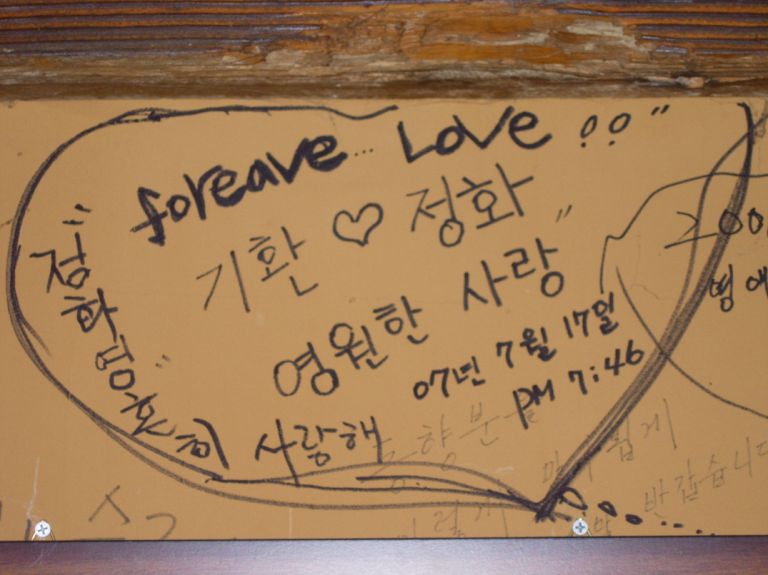 foreave... Love !!"
기환 ♡ 정화"
영원한 사랑
07년 7월 17일
PM 7:46
사랑해
200
영애
반갑습니다